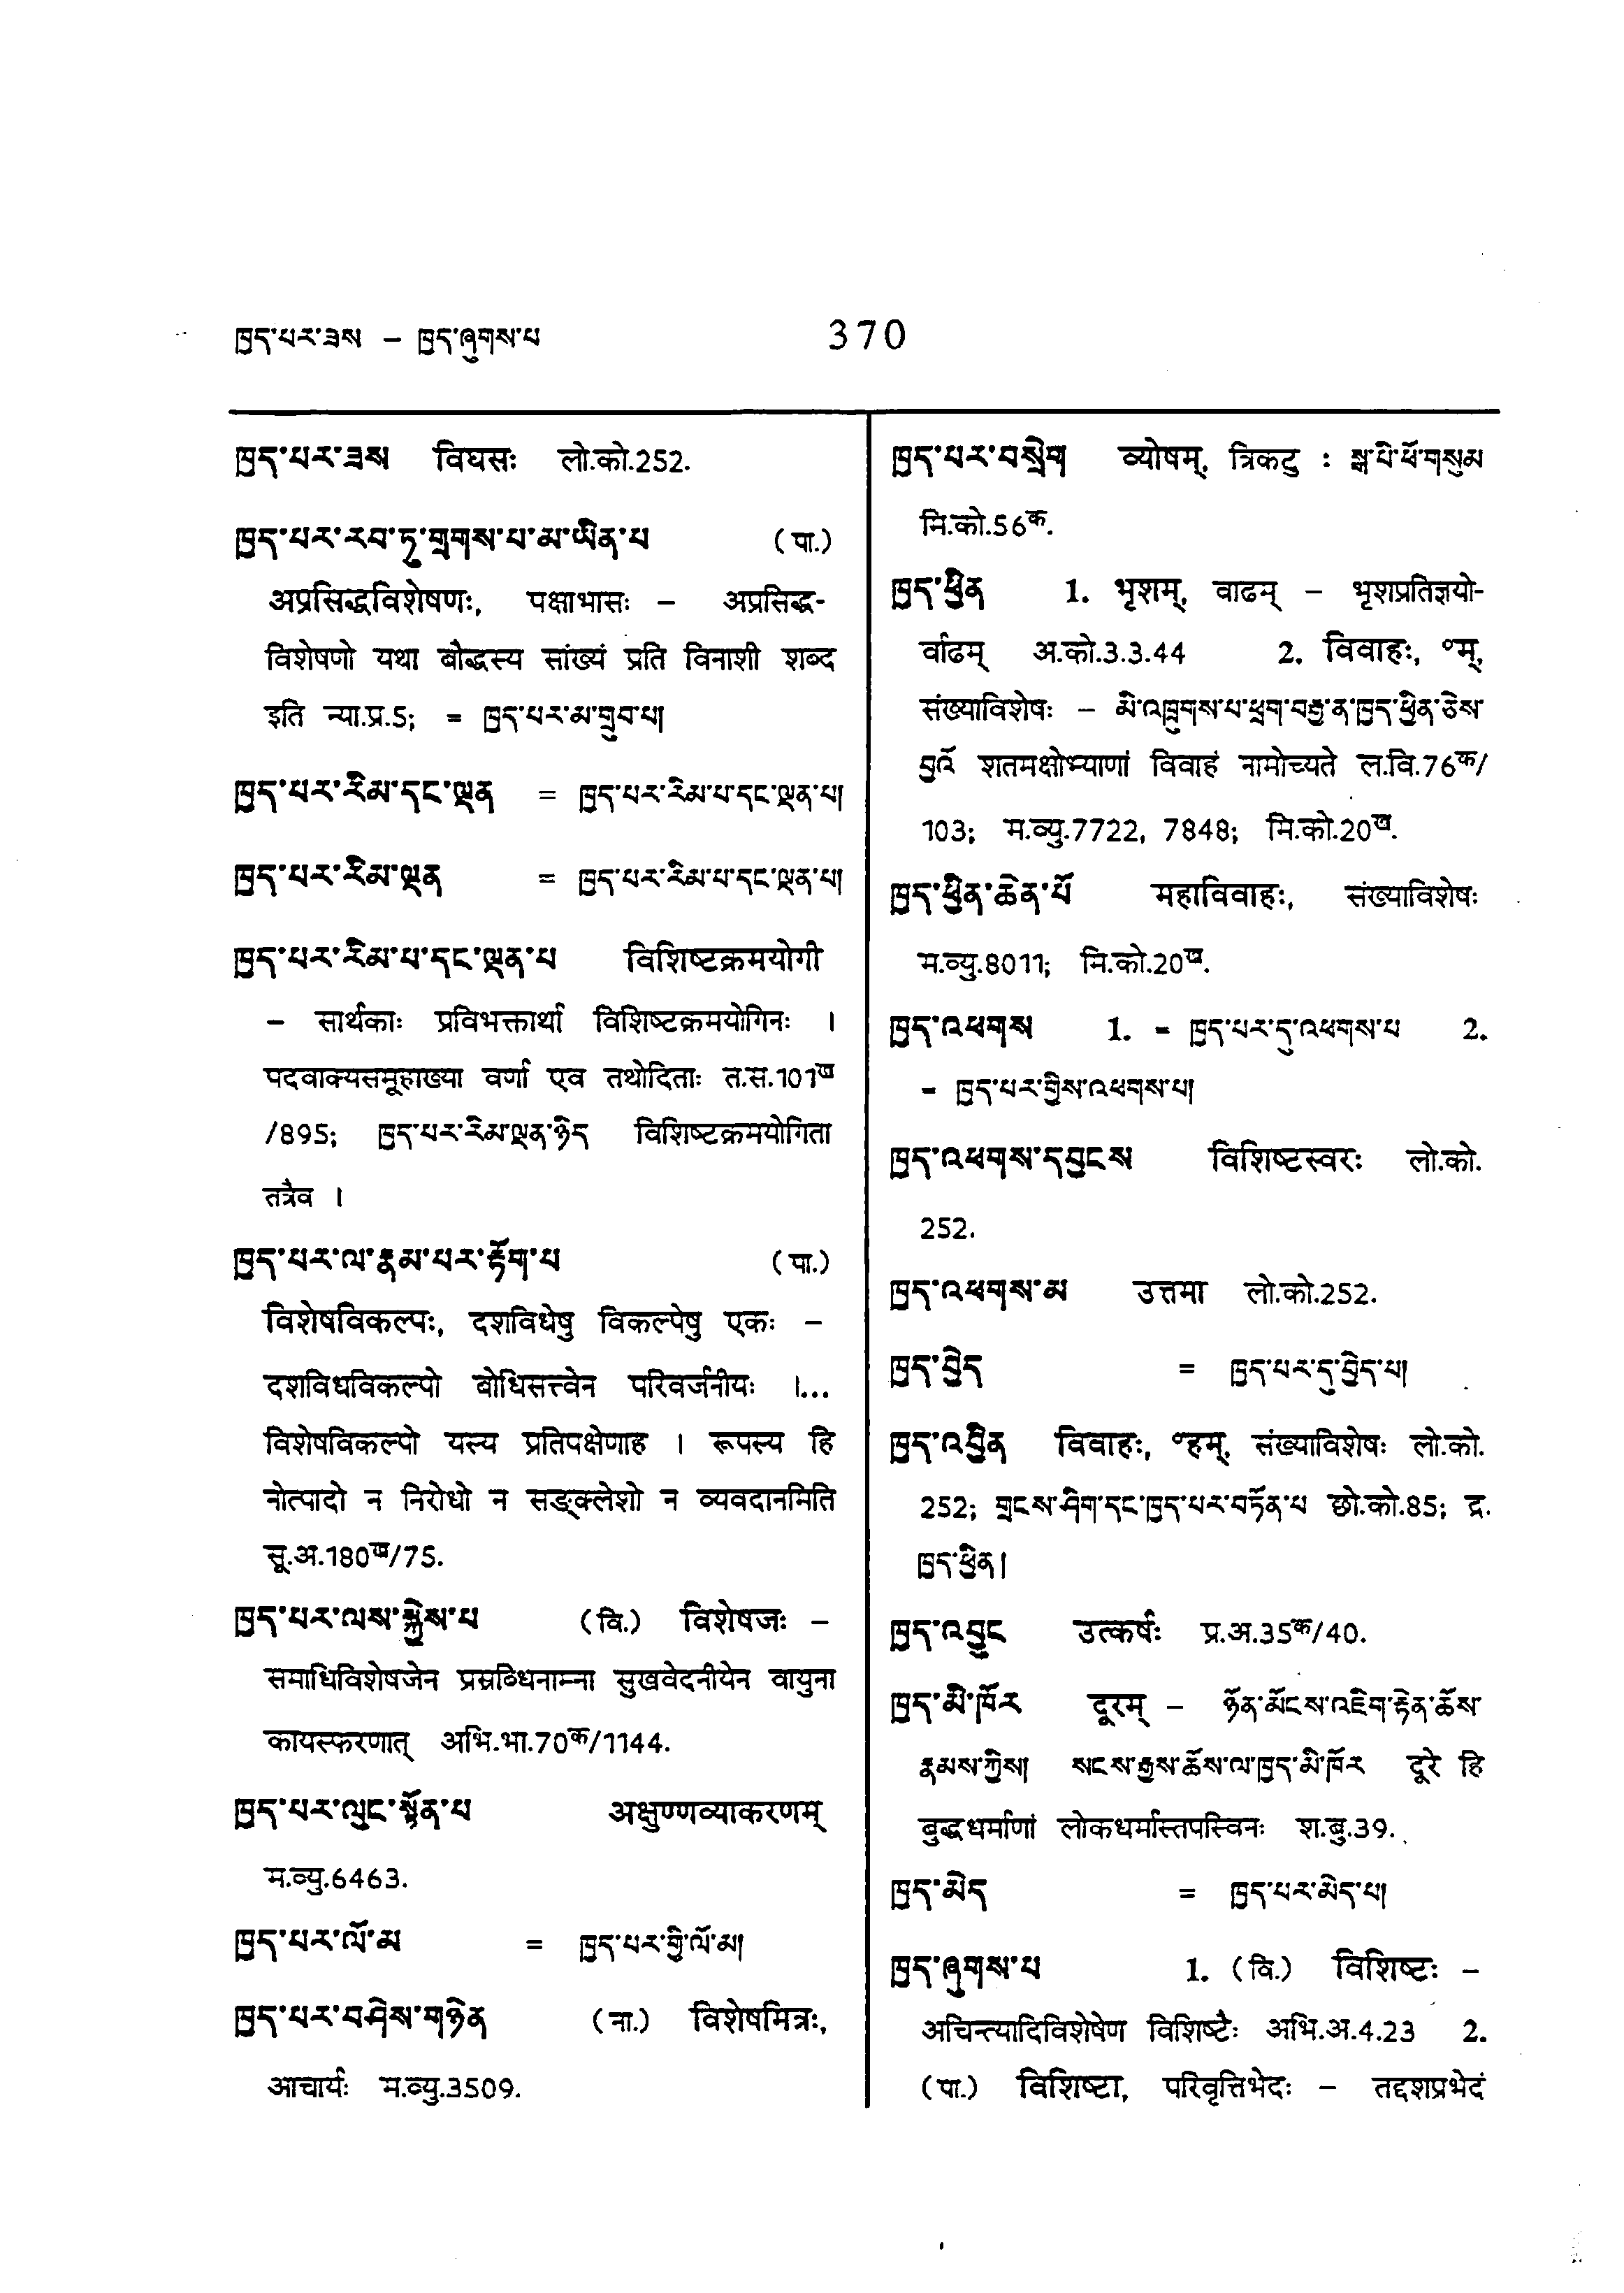 ཁྱད་པར་ཟས – ཁྱད་ཞུགས་པ
370
ཁྱད་པར་ཟས विघसः लो.को.252.
ཁྱད་པར་རབ་ཏུ་གྲགས་པ་མ་ཡིན་པ (पा.)
अप्रसिद्धविशेषणः, पक्षाभासः – अप्रसिद्ध-
विशेषणो यथा बौद्धस्य सांख्यं प्रति विनाशी शब्द
इति न्या.प्र.5; = ཁྱད་པར་མ་གྲུབ་པ།
ཁྱད་པར་རིམ་དང་ལྡན = ཁྱད་པར་རིམ་པ་དང་ལྡན་པ།
ཁྱད་པར་རིམ་ལྡན = ཁྱད་པར་རིམ་པ་དང་ལྡན་པ།
ཁྱད་པར་རིམ་པ་དང་ལྡན་པ विशिष्टक्रमयोगी
– सार्थकाः प्रविभक्तार्था विशिष्टक्रमयोगिनः ।
पदवाक्यसमूहाख्या वर्णा एव तथोदिताः त.स.101ख
/895; ཁྱད་པར་རིམ་ལྡན་ཉིད विशिष्टक्रमयोगिता
तत्रैव ।
ཁྱད་པར་ལ་རྣམ་པར་རྟོག་པ (पा.)
विशेषविकल्पः, दशविधेषु विकल्पेषु एकः –
दशविधविकल्पो बोधिसत्त्वेन परिवर्जनीयः ।...
विशेषविकल्पो यस्य प्रतिपक्षेणाह । रूपस्य हि
नोत्पादो न निरोधो न सङ्क्लेशो न व्यवदानमिति
सू.अ.180ख/75.
ཁྱད་པར་ལས་སྐྱེས་པ (वि.) विशेषजः –
समाधिविशेषजेन प्रस्रब्धिनाम्ना सुखवेदनीयेन वायुना
कायस्फरणात् अभि.भा.70क/1144.
ཁྱད་པར་ལུང་སྟོན་པ अक्षुण्णव्याकरणम्
म.व्यु.6463.
ཁྱད་པར་ལོ་མ = ཁྱད་པར་གྱི་ལོ་མ།
ཁྱད་པར་བཤེས་གཉེན (ना.) विशेषमित्रः,
आचार्यः म.व्यु.3509.
ཁྱད་པར་བསྲེག व्योषम्, त्रिकटु : སྒ་པི་ཕོ་གསུམ
मि.को.56क.
ཁྱད་ཕྱིན 1. भृशम्, वाढम् – भृशप्रतिज्ञयो-
र्वाढम् अ.को.3.3.44 2. विवाहः, ॰म्,
संख्याविशेषः – མི་འཁྲུགས་པ་ཕྲག་བརྒྱ་ན་ཁྱད་ཕྱིན་ཅེས་
བྱའོ शतमक्षोभ्याणां विवाहं नामोच्यते ल.वि.76क/
103; म.व्यु.7722, 7848; मि.को.20ख.
ཁྱད་ཕྱིན་ཆེན་པོ महाविवाहः, संख्याविशेषः
म.व्यु.8011; मि.को.20ख.
ཁྱད་འཕགས 1. = ཁྱད་པར་དུ་འཕགས་པ 2.
= ཁྱད་པར་གྱིས་འཕགས་པ།
ཁྱད་འཕགས་དབྱངས विशिष्टस्वरः लो.को.
252.
ཁྱད་འཕགས་མ उत्तमा लो.को.252.
ཁྱད་བྱེད = ཁྱད་པར་དུ་བྱེད་པ།
ཁྱད་འབྱིན विवाहः, ॰हम्, संख्याविशेषः लो.को.
252; གྲངས་ཤིག་དང་ཁྱད་པར་བཏོན་པ छो.को.85; द्र.
ཁྱད་ཕྱིན།
ཁྱད་འབྱུང उत्कर्षः प्र.अ.35क/40.
ཁྱད་མི་ཁོར दूरम् – ཉོན་མོངས་འཇིག་རྟེན་ཆོས་
རྣམས་ཀྱིས། སངས་རྒྱས་ཆོས་ལ་ཁྱད་མི་ཁོར दूरे हि
बुद्धधर्माणां लोकधर्मास्तपस्विनः श.बु.39.
ཁྱད་མེད = ཁྱད་པར་མེད་པ།
ཁྱད་ཞུགས་པ 1. (वि.) विशिष्टः –
अचिन्त्यादिविशेषेण विशिष्टैः अभि.अ.4.23 2.
(पा.) विशिष्टा, परिवृत्तिभेदः – तद्दशप्रभेदं